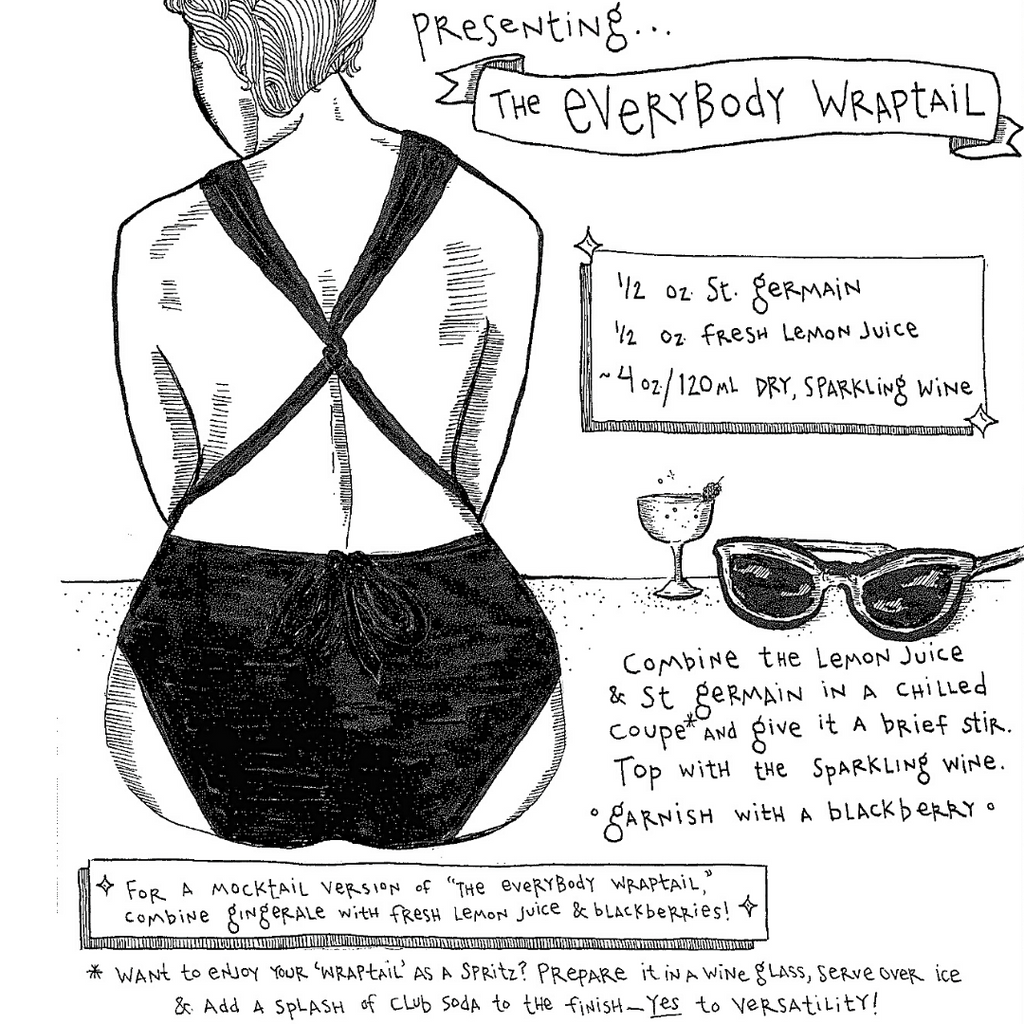 Presenting...
The Everybody Wraptail
1/2 oz. St. Germain
1/2 oz fresh lemon juice
~4 oz./120mL dry, sparkling wine
Combine the lemon juice
& St Germain in a chilled
coupe* and give it a brief stir.
Top with the sparkling wine.
° garnish with a blackberry °
For a mocktail version of "The Everybody Wraptail,"
combine gingerale with fresh lemon juice & blackberries!
* Want to enjoy your 'Wraptail' as a spritz? Prepare it in a wine glass, serve over ice
& add a splash of club soda to the finish— Yes to versatility!